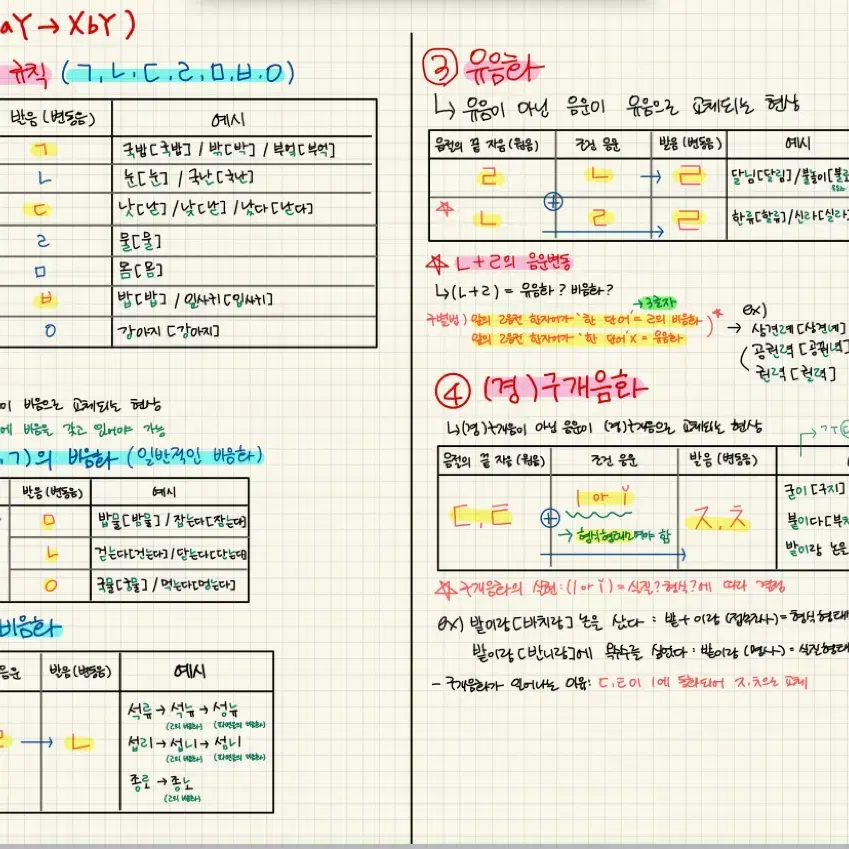 aY → XbY )
규칙 ( ㄱ, ㄴ, ㄷ, ㄹ, ㅁ, ㅂ, ㅇ )
발음 (변동음) 예시
ㄱ 국밥[국빱] / 밖[박] / 부엌[부억]
ㄴ 눈[눈] / 국난[궁난]
ㄷ 낫[낟] / 낮[낟] / 났다[낟다]
ㄹ 물[물]
ㅁ 몸[몸]
ㅂ 밥[밥] / 잎사귀[입사귀]
ㅇ 강아지 [강아지]
이 비음으로 교체되는 현상
에 비음을 갖고 있어야 가능
, ㄱ)의 비음화 (일반적인 비음화)
발음 (변동음) 예시
ㅁ 밥물[밤물] / 잡는다[잠는다]
ㄴ 걷는다[건는다] / 닫는다[단는다]
ㅇ 국물[궁물] / 먹는다[멍는다]
비음화
음운 발음 (변동음) 예시
→ ㄴ
석류 → 석뉴 → 성뉴
(ㄹ의 비음화)
섭리 → 섭니 → 섬니
(ㄹ의 비음화)
종로 → 종노
(ㄹ의 비음화)
③ 유음화
↳ 유음이 아닌 음운이 유음으로 교체되는 현상
음절의 끝 자음 (원음) 조건 음운 발음 (변동음) 예시
ㄹ + ㄴ → ㄹ 달님[달림] / 물놀이[물로
☆ ㄴ + ㄹ → ㄹ 한류[할류] / 신라[실라]
☆ ㄴ+ㄹ의 음운변동
↳ (ㄴ+ㄹ) = 유음화? 비음화?
→ 3음절
구별법) 앞의 2음절 한자어가 '한 단어' = ㄹ의 비음화
앞의 2음절 한자어가 '한 단어' X = 유음화
ex)
→ 상견례 [상견녜]
공권력 [공꿘녁]
권력 [궐력]
④ (경)구개음화
↳ (경)구개음이 아닌 음운이 (경)구개음으로 교체되는 현상
음절의 끝 자음 (원음) 조건 음운 발음 (변동음)
ㄷ, ㅌ + ㅣ or ǐ → ㅈ, ㅊ
→ 형식형태소여야 함
굳이 [구지]
붙이다[부치
밭이랑 논을
☆ 구개음화의 실현 : (ㅣ or ǐ) = 실질? 형식?에 따라 결정
ex) 밭이랑[바치랑] 논을 샀다 : 밭 + 이랑 (접속조사) = 형식형태
밭이랑[반니랑]에 옥수수를 심었다 : 밭이랑 (명사) = 실질형태
- 구개음화가 일어나는 이유: ㄷ, ㅌ이 ㅣ에 동화되어 ㅈ, ㅊ으로 교체